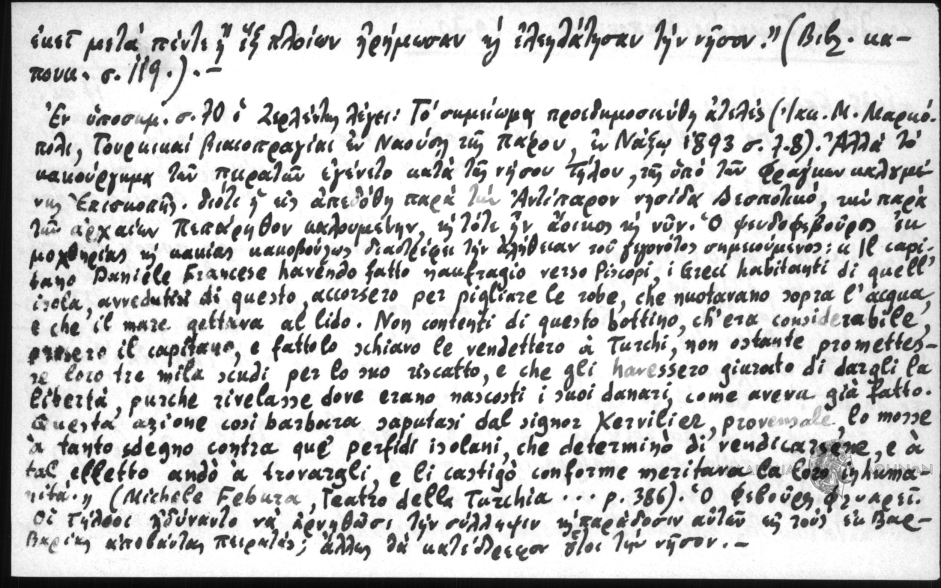 ἐκεῖ μετά πέντε ἤ ἕξ πλοίων ἠρήμωσαν κ ἐλεηλάτησαν τήν νῆσον." (Βιβ. κα-
πουκ. σ. 119.). –
Ἐν ὑποσημ. σ. 70 ὁ Ζερλέντης λέγει: Τό σημείωμα προεδημοσιεύθη ἀτελές (Ἰακ. Μ. Μαρκό-
πολι, Τουρκικαί βιαιοπραγίαι ἐν Ναούσῃ τῆς Πάρου, ἐν Νάξῳ 1893 σ. 7-8). Ἀλλά τό
κακούργημα τῶν πειρατῶν ἐγένετο κατά τῆς νήσου Τήλου, τῆς ὑπό τῶν Φράγκων καλουμέ-
νης Ἐπισκοπῆς. διότι ἡ εἰς ἀπεδόθη παρά τήν Ἀντίπαρον νησίδα Δεσποτικό, τήν παρά
τῶν ἀρχαίων Πεπάρηθον καλουμένην, κ τότε ἦν ἄοικος κ νῦν. Ὁ ψευδοφεβοῦρος ἐκ
μοχθηρίας κ κακίας κακοβούλως διαστρέφει τήν ἀλήθειαν τοῦ γεγονότος σημειούμενος: « Il capi-
tano Daniele Francese havendo fatto naufragio verso Piscopi, i Greci habitanti di quell'
isola, avvedutisi di questo, accorsero per pigliare le robe, che nuotavano sopra l'acqua,
e che il mare gettava al lido. Non contenti di questo bottino, ch'era considerabile,
presero il capitano, e fattolo schiavo le vendettero à Turchi, non ostante promettes-
se loro tre mila scudi per lo suo riscatto, e che gli havessero giurato di dargli la
libertà, purche rivelasse dove erano nascosti i suoi danari, come aveva già fatto.
Questa azione cosi barbara saputasi dal signor Kervilier, provensale, lo mosse
à tanto sdegno contra que' perfidi isolani, che determinò di vendicarsene, e à
tal effetto andò à trovargli, e li castigò conforme meritava la loro inhuma-
nità. » (Michele Febura, Teatro della Turchia ... p. 386). Ὁ Φεβούρης φλυαρεῖ.
Οἱ Τήλιοι ἠδύναντο νά ἀρνηθῶσι τήν σύλληψιν κ παράδοσιν αὐτῶν εἰς τούς ἐκ Βαρ-
βαρίας ἀποβάντας πειρατάς; ἄλλως θά κατέστρεφον οὗτοι τήν νῆσον. –